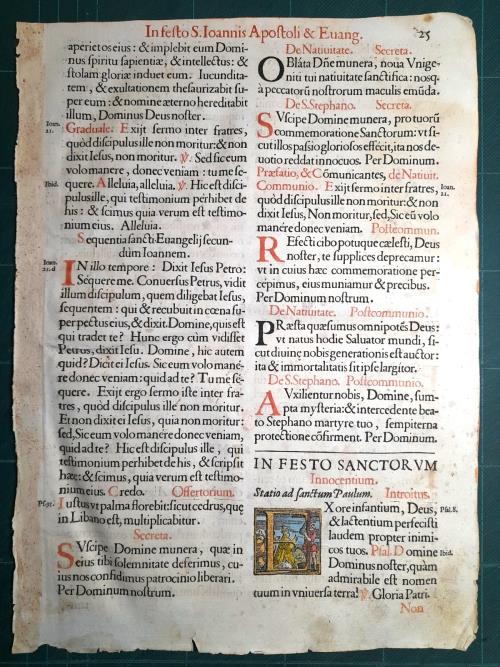 In festo S. Ioannis Apostoli & Euang.
25
aperiet os eius : & implebit eum Domi-
nus spiritu sapientiæ, & intellectus : &
stolam gloriæ induet eum. Iucundita-
tem, & exultationem thesaurizabit su-
per eum : & nomine æterno hereditabit
illum, Dominus Deus noster.
Ioan. 21.
Graduale. Exijt sermo inter fratres,
quòd discipulus ille non moritur: & non
dixit Iesus, non moritur. ℣. Sed sic eum
volo manere, donec veniam : tu me se-
Ibid.
quere. Alleluia, alleluia. ℣. Hic est disci-
pulus ille, qui testimonium perhibet de
his : & scimus quia verum est testimo-
nium eius. Alleluia.
Sequentia sancti Euangelij secun-
dùm Ioannem.
Ioan. 21. d
IN illo tempore : Dixit Iesus Petro:
Sequere me. Conuersus Petrus, vidit
illum discipulum, quem diligebat Iesus,
sequentem : qui & recubuit in cœna su-
per pectus eius, & dixit. Domine, quis est
qui tradet te? Hunc ergo cùm vidisset
Petrus, dixit Iesu. Domine, hic autem
quid? Dicit ei Iesus. Sic eum volo mané-
re donec veniam: quid ad te? Tu me sé-
quere. Exijt ergo sermo iste inter fra-
tres, quòd discipulus ille non moritur.
Et non dixit ei Iesus, quia non moritur:
sed, Sic eum volo manere donec veniam,
quid ad te? Hic est discipulus ille, qui
testimonium perhibet de his, & scripsit
hæc: & scimus, quia verum est testimo-
nium eius. Credo. Offertorium.
Ps. 91.
Iustus vt palma florebit: sicut cedrus, quę
in Libano est, multiplicabitur.
Secreta.
SVscipe Domine munera, quæ in
eius tibi solemnitate deferimus, cu-
ius nos confidimus patrocinio liberari.
Per Dominum nostrum.
De Natiuitate. Secreta.
OBláta Dñe munera, noua Vnige-
niti tui natiuitate sanctifica: nosq́
à peccatorũ nostrorum maculis emũda.
De S. Stephano. Secreta.
SVscipe Domine munera, pro tuorũ
commemoratione Sanctorum: vt si-
cut illos passio gloriosos effecit, ita nos de-
uotio reddat innocuos. Per Dominum.
Præfatio, & Cõmunicantes, de Natiuit.
Communio. Exijt sermo inter fratres,
Ioan. 21.
quòd discipulus ille non moritur: & non
dixit Iesus, Non moritur, sed, Sic eũ volo
manére donec veniam. Postcommun.
REfecti cibo potuque cælesti, Deus
noster, te supplices deprecamur :
vt in cuius hæc commemoratione per-
cépimus, eius muniamur & precibus.
Per Dominum nostrum.
De Natiuitate. Postcommunio.
PRæsta quæsumus omnipotẽs Deus:
vt natus hodie Saluator mundi, si-
cut diuinę nobis generationis est auctor:
ita & immortalitatis sit ipse largitor.
De S. Stephano. Postcommunio.
AVxilientur nobis, Domine, sum-
pta mysteria: & intercedente bea-
to Stephano martyre tuo, sempiterna
protectione cõfirment. Per Dominum.
IN FESTO SANCTORVM
Innocentium.
Statio ad sanctum Paulum. Introitus.
EX ore infantium, Deus,
Psal. 8.
& lactentium perfecisti
laudem propter inimi-
cos tuos. Psal. Domine
Ibid.
Dominus noster, quàm
admirabile est nomen
tuum in vniuersa terra! ℣. Gloria Patri.
Non